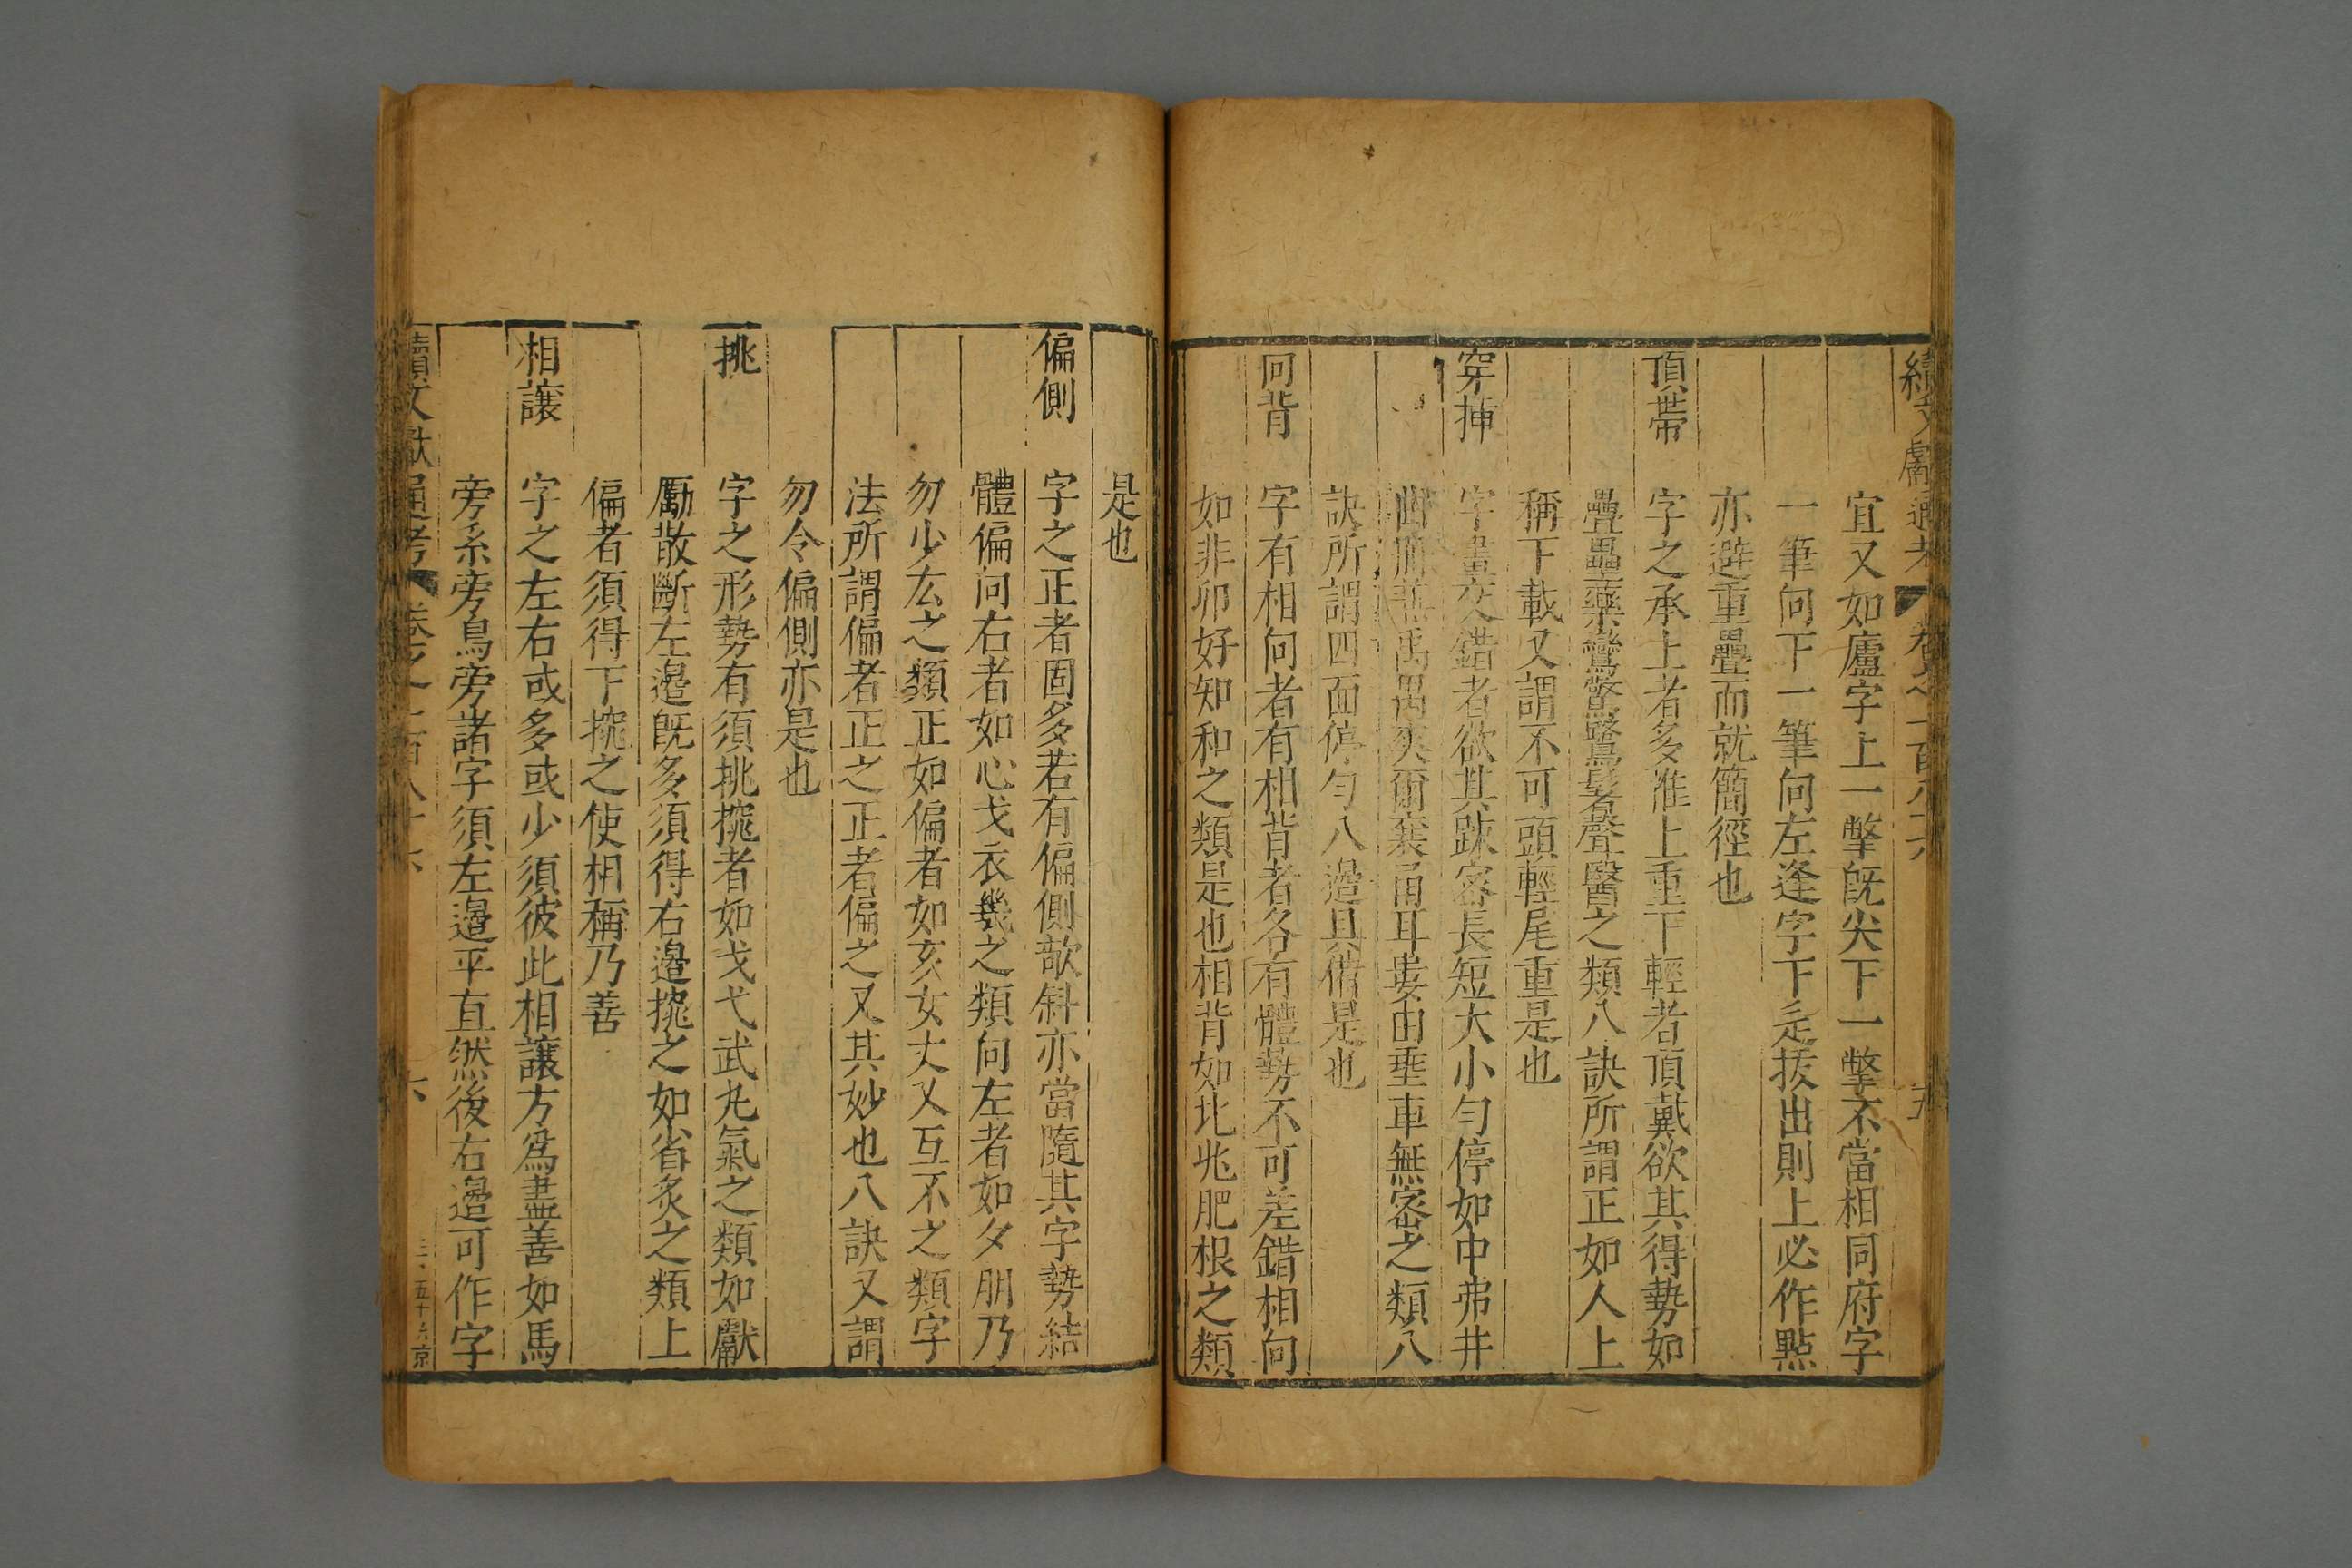 續文獻通考 卷之一百八十六 五
宜又如廬字上一撆旣尖下一撆不當相同府字
一筆向下一筆向左逢字下辵拔出則上必作㸃
亦避重疊而就簡徑也
頂帶 字之承上者多惟上重下輕者頂戴欲其得勢如
疊壘藥鸞驚鷺髻聲醫之類八訣所謂正如人上
稱下載又謂不可頭輕尾重是也
穿揷 字畫交錯者欲其踈密長短大小勻停如中弗井
曲冊兼禹禺爽爾襄甬耳婁由垂車無密之類八
訣所謂四面停勻八邊具備是也
向背 字有相向者有相背者各有體勢不可差錯相向
如非卯好知和之類是也相背如北兆肥根之類
是也
偏側 字之正者固多若有偏側欹斜亦當隨其字勢結
體偏向右者如心戈衣幾之類向左者如夕朋乃
勿少厷之類正如偏者如亥女丈又互不之類字
法所謂偏者正之正者偏之又其妙也八訣又謂
勿令偏側亦是也
挑 字之形勢有須挑㩔者如戈弋武九氣之類如獻
勵散斷左邉旣多須得右邉㩔之如省炙之類上
偏者須得下㩔之使相稱乃善
相讓 字之左右或多或少須彼此相讓方爲盡善如馬
旁糸旁鳥旁諸字須左邉平直然後右邉可作字
續文獻通考 卷之一百八十六 六 三、五十六 京